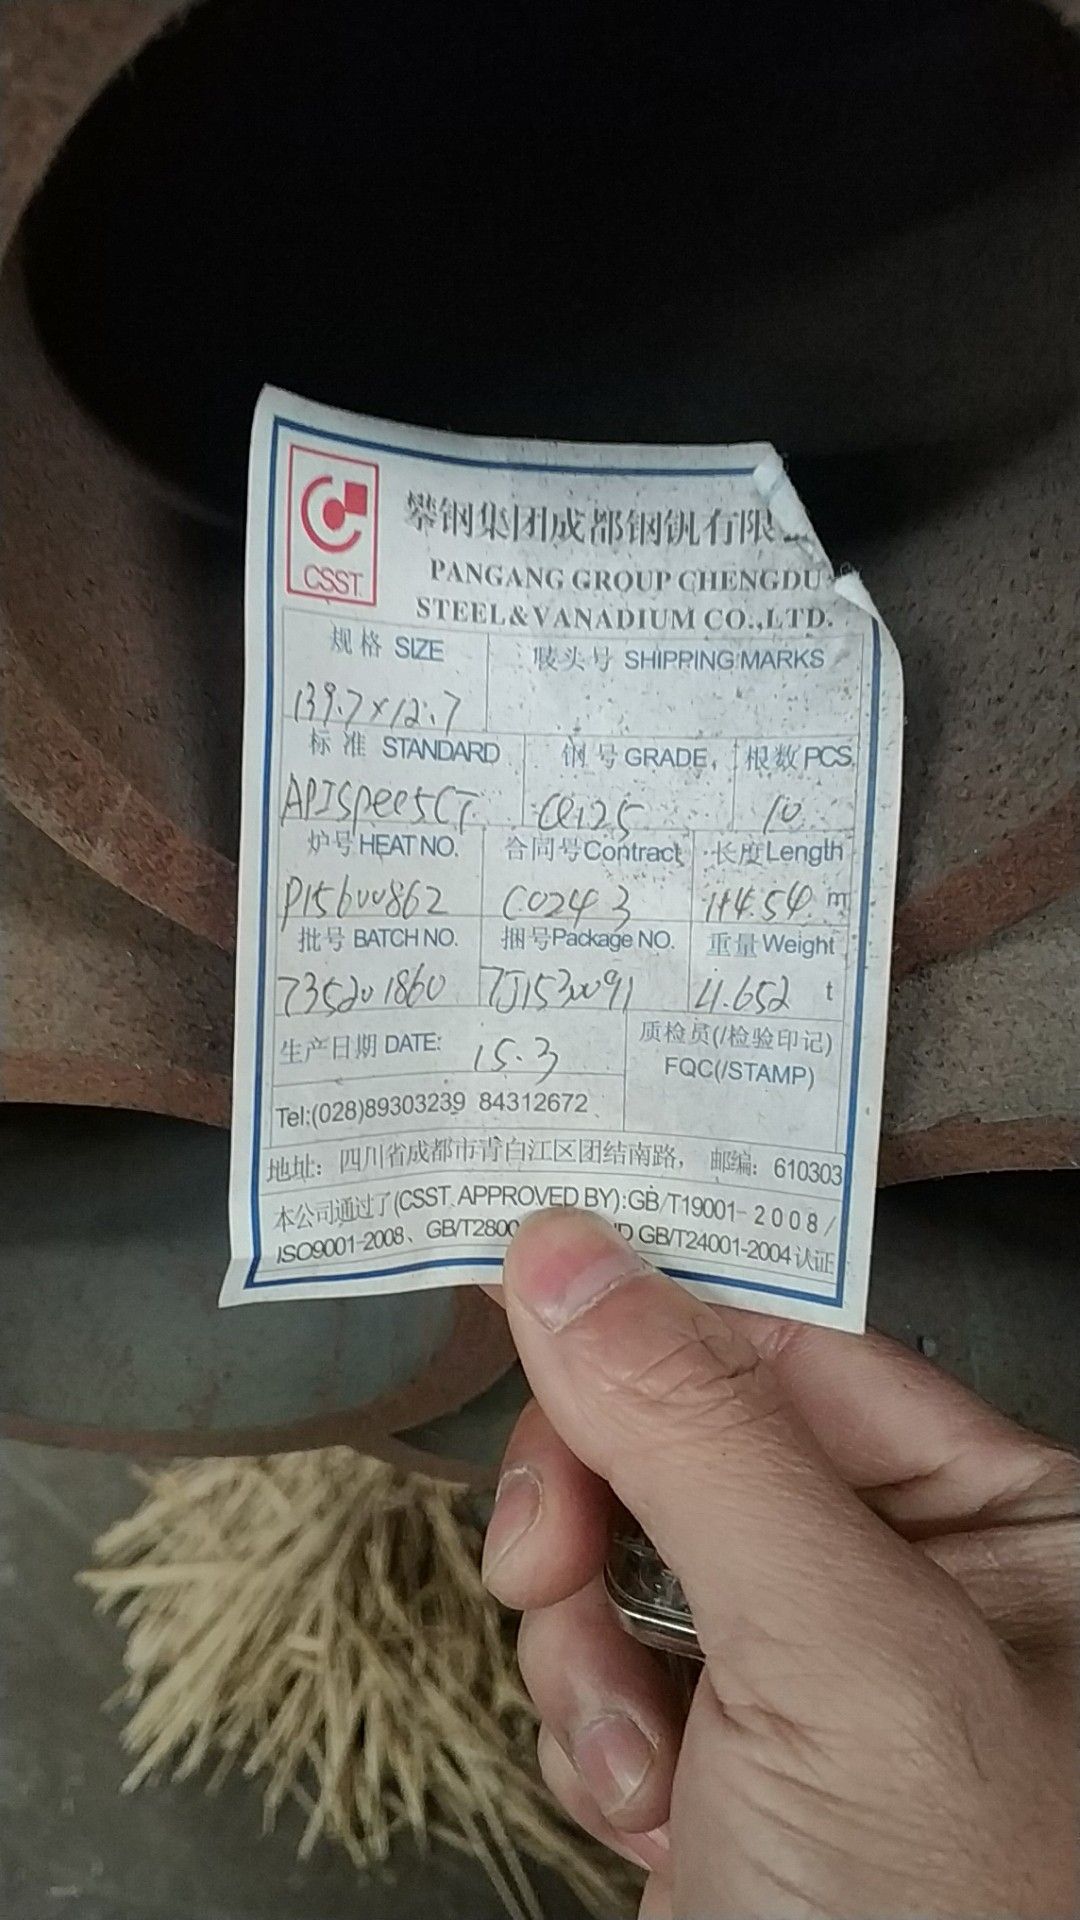 攀钢集团成都钢钒有限
CSST.
PANGANG GROUP CHENGDU
STEEL&VANADIUM CO.,LTD.
规格 SIZE 唛头号 SHIPPING MARKS
139.7×12.7
标准 STANDARD 钢号 GRADE 根数 PCS
APISpec5CT Q125 10
炉号 HEAT NO. 合同号Contract 长度Length
P15600862 C0243 114.54 m
批号 BATCH NO. 捆号Package NO. 重量Weight
735201860 TJ1530091 4.652 t
生产日期 DATE: 15.3 质检员(/检验印记)
FQC(/STAMP)
Tel:(028)89303239 84312672
地址：四川省成都市青白江区团结南路， 邮编：610303
本公司通过了(CSST. APPROVED BY):GB/T19001-2008/
ISO9001-2008、GB/T2800 GB/T24001-2004认证